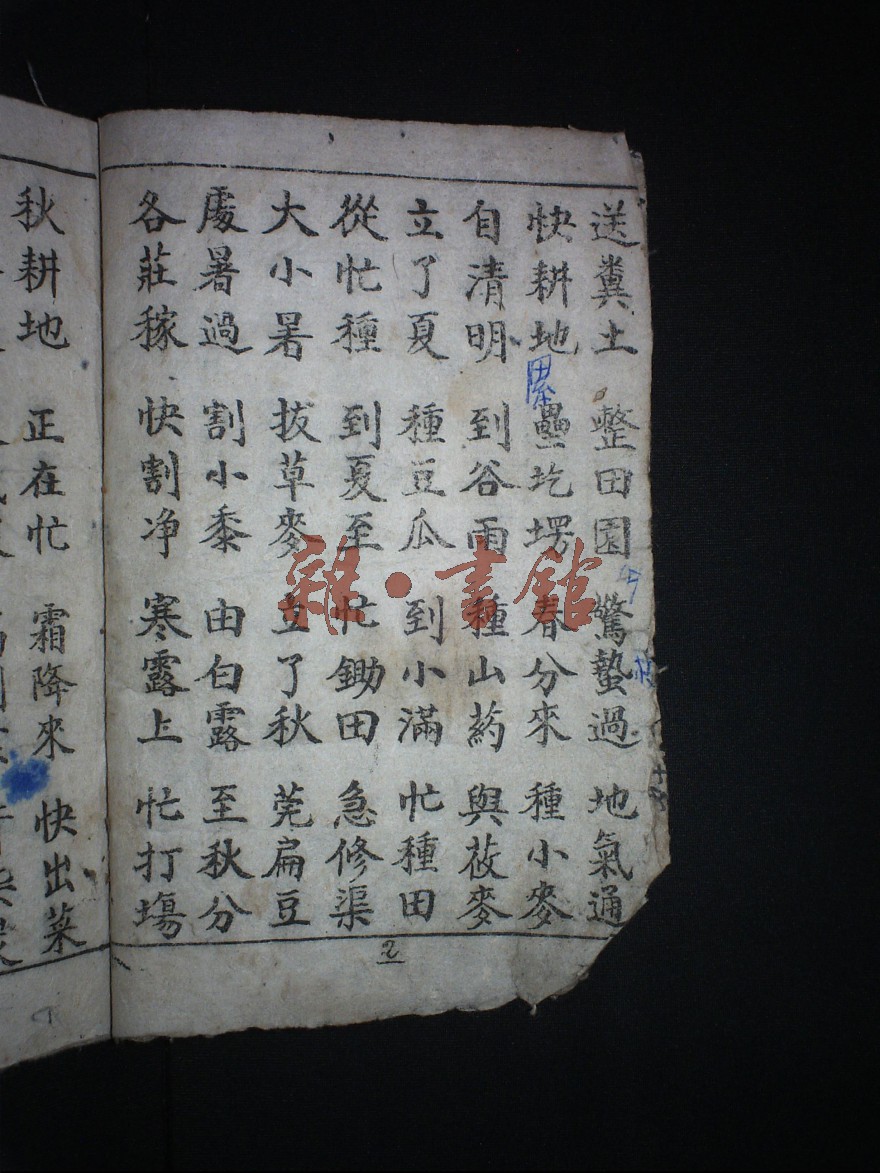 送糞土 整田園 驚蟄過 地氣通
快耕地 壘圪塄 春分來 種小麥
自清明 到谷雨 種山葯 與莜麥
立了夏 種豆瓜 到小滿 忙種田
從忙種 到夏至 忙鋤田 急修渠
大小暑 拔草麥 立了秋 莞扁豆
處暑過 割小黍 由白露 至秋分
各莊稼 快割净 寒露上 忙打塲
秋耕地 正在忙 霜降來 快出菜
2
雜·書館